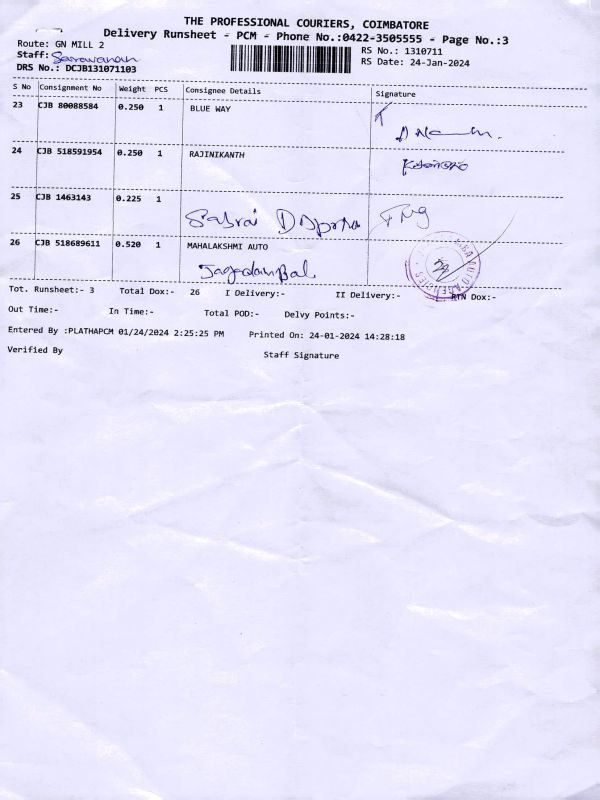 THE PROFESSIONAL COURIERS, COIMBATORE
Delivery Runsheet - PCM - Phone No.:0422-3505555 - Page No.:3
Route: GN MILL 2
RS No.: 1310711
Staff: Saravanan
RS Date: 24-Jan-2024
DRS No.: DCJB131071103
S No Consignment No Weight PCS Consignee Details Signature
23 CJB 80088584 0.250 1 BLUE WAY
24 CJB 518591954 0.250 1 RAJINIKANTH
25 CJB 1463143 0.225 1
26 CJB 518689611 0.520 1 MAHALAKSHMI AUTO
Tot. Runsheet:- 3 Total Dox:- 26 I Delivery:- II Delivery:- RTN Dox:-
Out Time:- In Time:- Total POD:- Delvy Points:-
Entered By :PLATHAPCM 01/24/2024 2:25:25 PM Printed On: 24-01-2024 14:28:18
Verified By Staff Signature